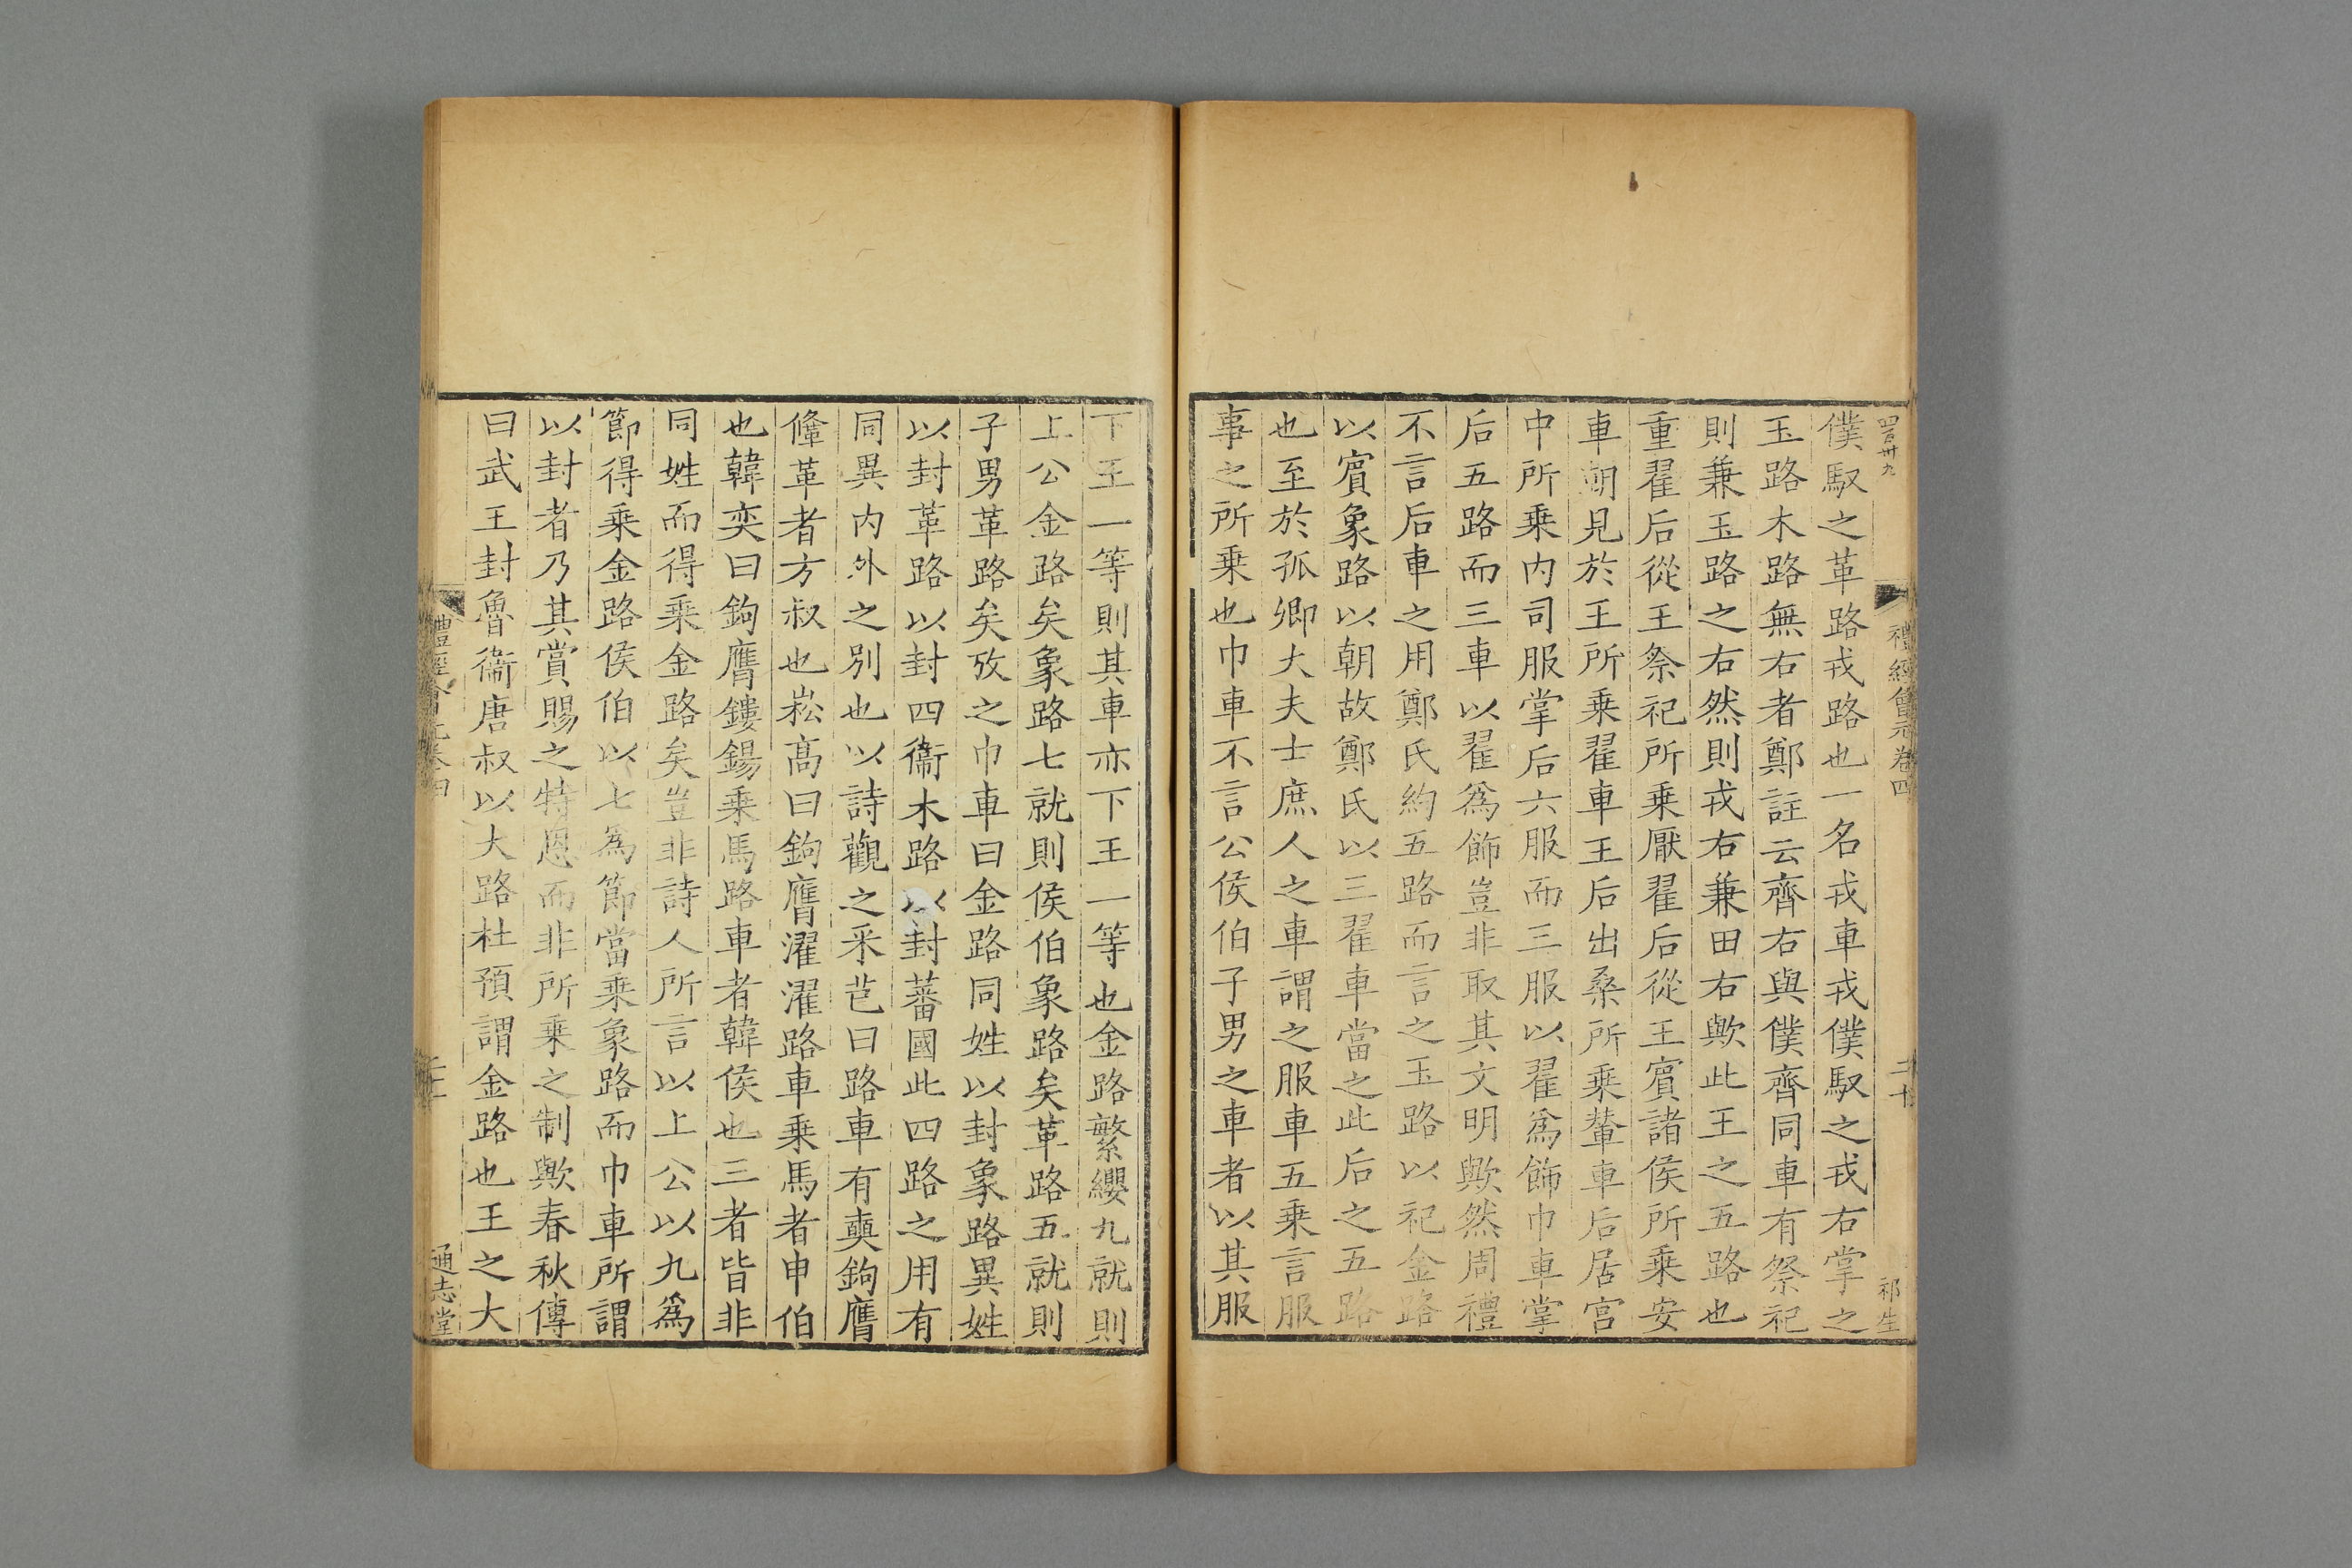 四百卅九
禮經會元卷四
二十
祁生
僕馭之革路戎路也一名戎車戎僕馭之戎右掌之
玉路木路無右者鄭註云齊右與僕齊同車有祭祀
則兼玉路之右然則戎右兼田右歟此王之五路也
重翟后從王祭祀所乘厭翟后從王賓諸侯所乘安
車朝見於王所乘翟車王后出桑所乘輦車后居宮
中所乘内司服掌后六服而三服以翟爲飾巾車掌
后五路而三車以翟爲飾豈非取其文明歟然周禮
不言后車之用鄭氏約五路而言之玉路以祀金路
以賓象路以朝故鄭氏以三翟車當之此后之五路
也至於孤卿大夫士庶人之車謂之服車五乘言服
事之所乘也巾車不言公侯伯子男之車者以其服
下王一等則其車亦下王一等也金路繁纓九就則
上公金路矣象路七就則侯伯象路矣革路五就則
子男革路矣攷之巾車曰金路同姓以封象路異姓
以封革路以封四衞木路以封蕃國此四路之用有
同異内外之别也以詩觀之采芑曰路車有奭鉤膺
鞗革者方叔也崧高曰鉤膺濯濯路車乘馬者申伯
也韓奕曰鉤膺鏤鍚乘馬路車者韓侯也三者皆非
同姓而得乘金路矣豈非詩人所言以上公以九爲
節得乘金路侯伯以七爲節當乘象路而巾車所謂
以封者乃其賞賜之特恩而非所乘之制歟春秋傳
曰武王封魯衞唐叔以大路杜預謂金路也王之大
禮經會元卷四
通志堂